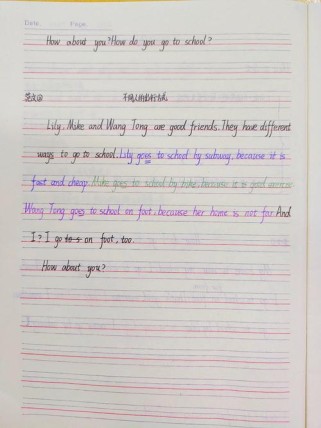 Date Page
How about you? How do you go to school?
范文四 不同人的出行方式
Lily, Mike and Wang Tong are good friends. They have different
ways to go to school. Lily goes to school by subway, because it is
fast and cheap. Mike goes to school by bike, because it is good exercise
Wang Tong goes to school on foot, because her home is not far. And
I? I go on foot, too.
How about you?